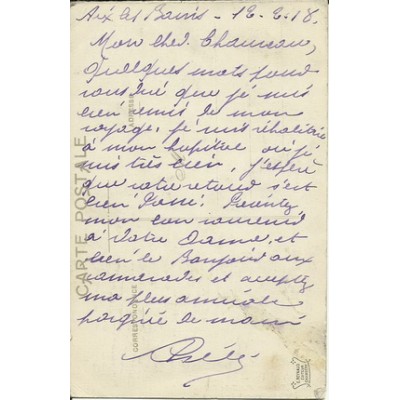 Aix les Bains - 12-2-18.
Mon cher Chauveau,
Quelques mots pour
vous dire que je suis
bien remis de mon
voyage. Je suis réhabitué
à mon hôpital où je
suis très bien, j'espère
que votre retour s'est
bien passé. Présentez
mon bon souvenir
à votre Dame, et
bien le Bonjour aux
camarades et acceptez
ma plus amicale
poignée de main
CARTE POSTALE
CORRESPONDANCE
ADRESSE